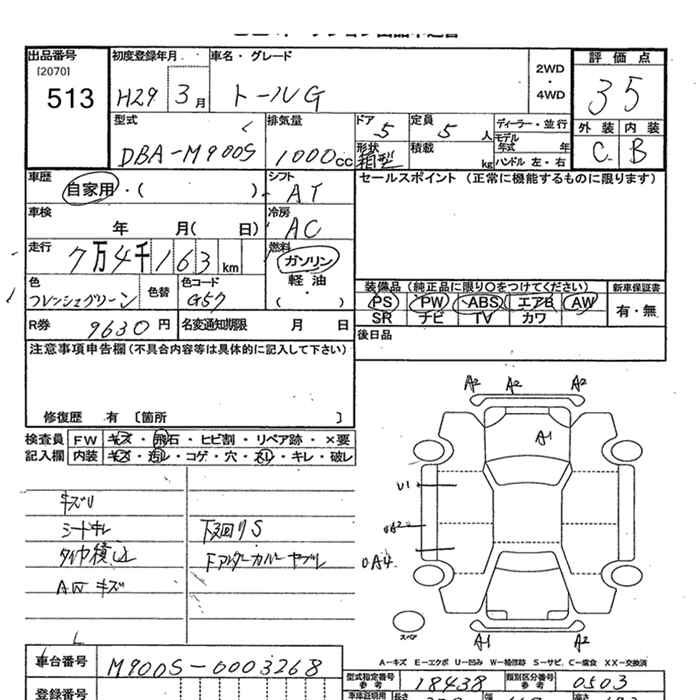 出品番号 初度登録年月 車名・グレード 評価点
[2070]
513 H29 3月 トールG 2WD・4WD 35
型式 排気量 ドア 定員 ディーラー・並行 外装 内装
DBA-M900S 1000cc 5 5人 モデル年式 年 C B
形状 箱型 積載 kg ハンドル 左・右
車歴 自家用・( ) シフト AT セールスポイント (正常に機能するものに限ります)
車検 年 月( 日) 冷房 AC
走行 7万4千163km 燃料 ガソリン
軽油
・
( )
色 フレッシュグリーン 色替 色コード G57
装備品(純正品に限り○をつけてください) 新車保証書
PS PW ABS エアB AW 有・無
SR ナビ TV カワ
R券 9630円 名変通知期限 月 日 後日品
注意事項申告欄(不具合内容等は具体的に記入して下さい)
修復歴 有 〔箇所 〕
検査員 FW キズ・飛石・ヒビ割・リペア跡・×要
記入欄 内装 キズ・汚レ・コゲ・穴・スレ・キレ・破レ
キズU
シートキレ 下廻りS
タイヤ積込 Fアンダーカバーヤブレ
AWキズ
A2 A2 A2
A1
U1
A2
A4
スペア
A1 A2
A-キズ E-エクボ U-凹み W-補修跡 S-サビ、C-腐食 XX-交換済
車台番号 M900S-0003268
型式指定番号 参考 18438 類別区分番号 参考 0503
登録番号
長さ 幅 高さ